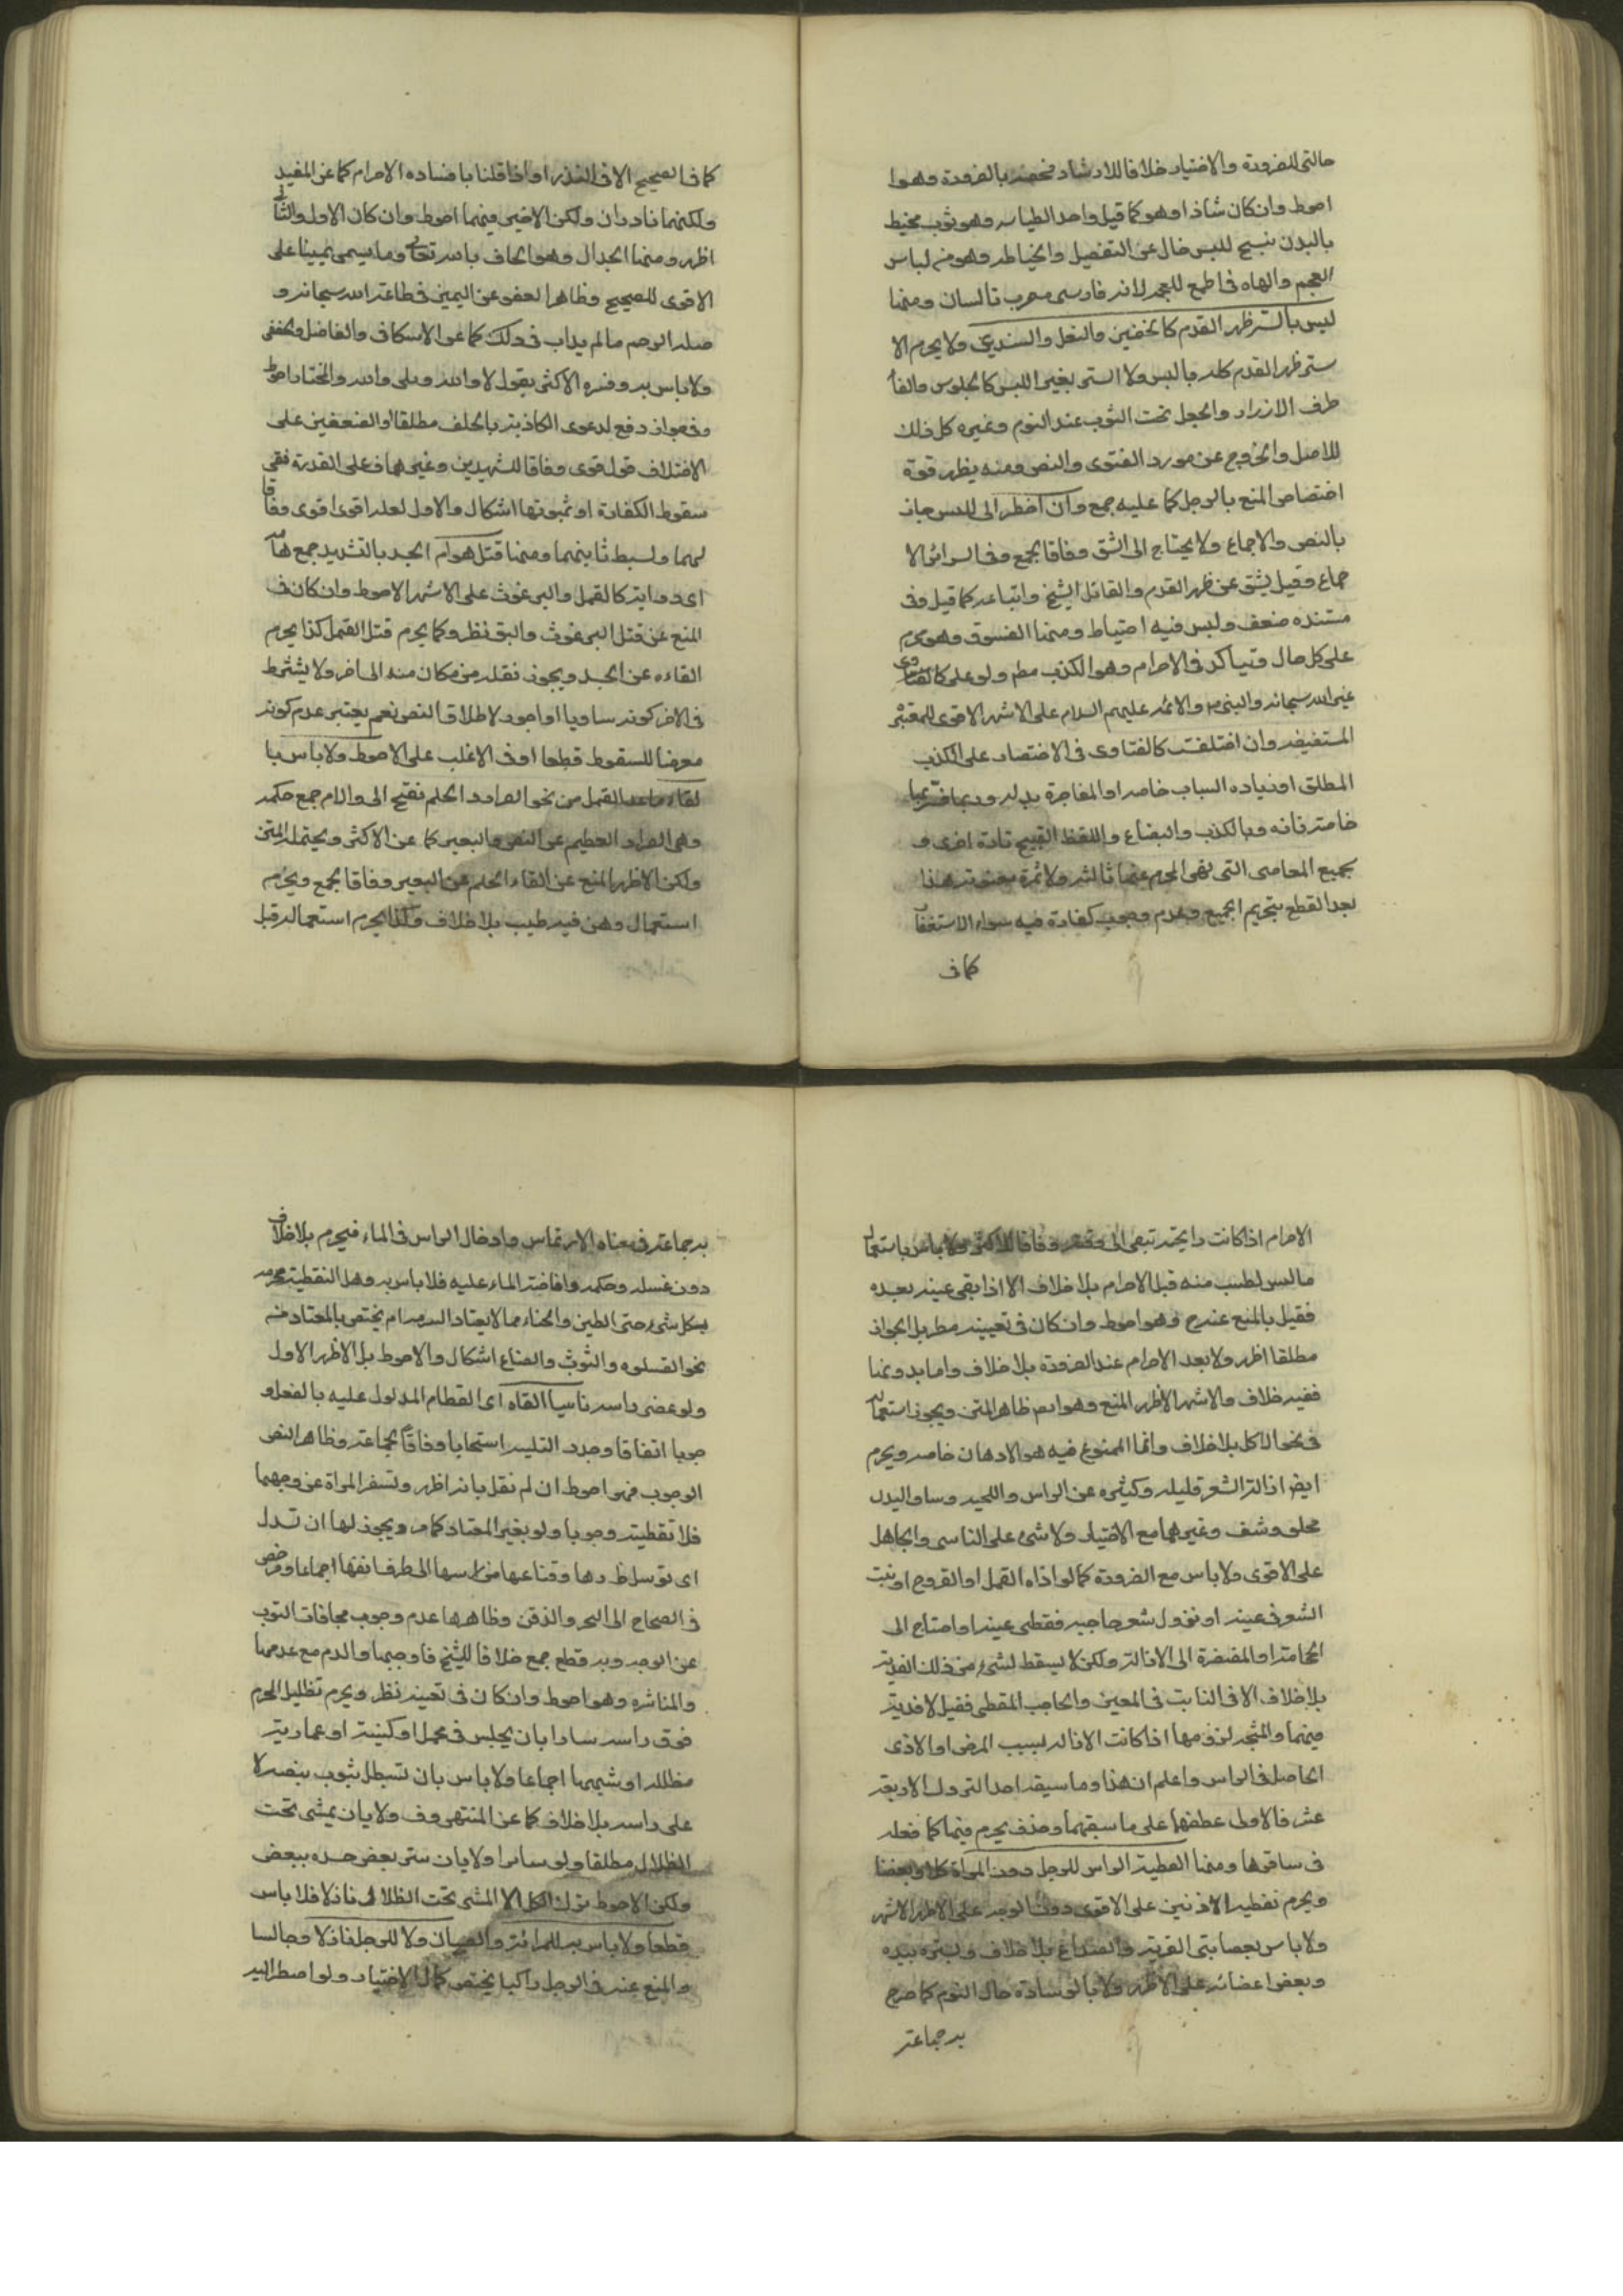 حالتى الضرورة والاختيار خلافا للارشاد فخصه بالضرورة وهو ا
احوط وان كان شاذا وهو كما قيل واحد الطيالسه وهو ثوب محيط
بالبدن ينسج للبس خال عن التفصيل والخياطه وهو من لباس
العجم والهاء فى الجمع للعجمه لانه فارسى معرب تالسان ومنها
لبس ما يستر ظهر القدم كالخفين والنعل والسندى ولا يحرم الا
ستر ظهر القدم كله باللبس ولا الستر بغير اللبس كالجلوس والقا
طرف الازار والجعل تحت الثوب عند النوم وغيره كل ذلك
للاصل والخروج عن مورد الفتوى والنص ومنه يظهر قوة
اختصاص المنع بالرجل كما عليه جمع وان اضطر الى اللبس جاز
بالنص والاجماع ولا يحتاج الى الشق وفاقا لجمع وفى السرائر الا
جماع وقيل يشق عن ظهر القدم والقائل الشيخ واتباعه كما قيل وفى
مستنده ضعف وليس فيه احتياط ومنها الفسوق وهو محرم
على كل حال ويتاكد فى الاحرام وهو الكذب مطم ولو على كالفتاوى
غير الله سبحانه والنبى ص والائمه عليهم السلام على الاشهر الاقوى للمعتبر
المستفيضه وان اختلفت كالفتاوى فى الاختصار على الكذب
المطلق او زياده السباب خاصه او المفاخرة بدله وربما
خاصة فانه وبالكذب والبذاء واللفظ القبيح تارة اخرى و
بجميع المعاصى التى نهى المحرم عنها ثالثه ولا ثمرة هذا
بعد القطع بتحريم الجميع وعدم وجوب كفارة فيه سواء الاستغفا
كما فى
كما فى الصحيح الا فى النذر او اذا قلنا بافساده الاحرام كما عن المفيد
ولكنهما نادران ولكن الاخير منهما احوط وان كان الاول والثانى
اظهر ومنها الجدال وهو الحلف بالله تعالى وما يسمى يمينا على
الاقوى للصحيح وظاهر العفو عن اليمين فى طاعة الله سبحانه و
صله الرحم ما لم يداب فى ذلك كما عن الاسكافى والفاضل والجعفى
ولا باس به وفسره الاكثر بقول لا والله وبلى والله والمختار احوط
وفى جواز دفع الدعوى الكاذبة بالحلف مطلقا او الضعفين على
الاختلاف قول قوى وفاقا للشهيدين وغيرهما فعلى القدرة ففى
سقوط الكفارة او ثبوتها اشكال والاول لعله اقوى اقوى وفاقا
لهما ولسبط ثانيهما ومنها قتل هوام الجسد بالتشديد جمع هامه
اى دوابه كالقمل والبرغوث على الاشهر الاحوط وان كان فى
المنع عن قتل البرغوث والبق نظر وكما يحرم قتل القمل كذا يحرم
القاءه عن الجسد ويجوز نقله من مكان منه الى اخر ولا يشترط
فى الاخر كونه مساويا او اجود لاطلاق النص نعم يعتبر عدم كونه
معرضا للسقوط قطعا او فى الاغلب على الاحوط ولا باس با
لقاء ما عدا القمل من نحو القراد والحلم بفتح الحاء واللام جمع حلمه
وهى القراد العظيم عن النفس والبعير كما عن الاكثر ويحتمله المتن
ولكن الاظهر المنع عن القاء الحلم عن البعير وفاقا لجمع ويحرم
استعمال دهن فيه طيب بلا خلاف وكذا يحرم استعماله قبل
الاحرام اذا كانت رايحته تبقى الى وقته وفاقا للاكثر ولا باس باستعمال
ما ليس لطيب منه قبل الاحرام بلا خلاف الا اذا بقى عينه بعده
فقيل بالمنع عنه ح وهو احوط وان كان فى تعيينه مطر بل الجواز
مطلقا اظهر ولا بعد الاحرام عند الضرورة بلا خلاف واما بدونها
ففيه خلاف والاشهر الاظهر المنع وهو ايضا ظاهر المتن ويجوز استعماله
فى نحو الاكل بلا خلاف وانما الممنوع فيه هو الادهان خاصه ويحرم
ايض ازالة الشعر قليله وكثيره عن الراس واللحيه وساير البدن
بحلق ونتف وغيرهما مع الاختيار ولا شىء على الناسى والجاهل
على الاقوى ولا باس مع الضرورة كما لو اذاه القمل او القروح او نبت
الشعر فى عينه او نزول شعر حاجبه فغطى عينه او احتاج الى
الحجامة المفتقرة الى الازالة ولكن لا يسقط لشىء من ذلك الفدية
بلا خلاف الا فى النابت فى العين والحاجب المغطى فقيل لا فدية
فيهما والمتجه لزومها اذا كانت الازاله لسبب المرض او الاذى
الحاصل فى الراس واعلم ان هذا وما سبقه احد التروك الاربعة
عشر فالاولى عطفها على ما سبقهما وحذف يحرم فيهما كما فعله
فى سابقها ومنها تغطية الراس للرجل دون المراة كلا وبعضا
ويحرم تغطية الاذنين على الاقوى دون الوجه على الاظهر الاشهر
ولا باس بعصابتى القربة والصداع بلا خلاف ويستره بيده
وبعض اعضائه على الاظهر ولا بالوسادة حال النوم كما صرح
به جماعة
به جماعة وفى معناه الارتماس وادخال الراس فى الماء فيحرم بلا خلاف
دون غسله وحكه وافاضة الماء عليه فلا باس به وهل التغطية محرمه
بكل شىء حتى الطين والحناء مما لا يعتاد الستر به ام يختص بالمعتاد منه
نحو القلنسوه والثوب والقناع اشكال والاحوط بل الاظهر الاول
ولو غطى راسه ناسيا القاه اى الغطاء المدلول عليه بالفعل و
جوبا اتفاقا وجدد التلبيه استحبابا وفاقا لجماعة وظاهر النص
الوجوب فهو احوط ان لم نقل بانه اظهر وتسفر المراة عن وجهها
فلا تغطيته وجوبا ولو بغير المعتاد كما مر ويجوز لها ان تسدل
اى ترسل خمارها وقناعها من راسها الى طرف انفها اجماعا ورخص
فى الصحاح الى النحر والذقن وظاهرها عدم وجوب مجافات الثوب
عن الوجه وبه قطع جمع خلافا للشيخ فاوجبها والدم مع عدمها
والمباشره وهو احوط وان كان فى تعيينه نظر ويحرم تظليل المحرم
فوق راسه سائرا بان يجلس فى محمل او كنيسة او عمارية
مظلله او شبهها اجماعا ولا باس بان تسظل بثوب ينصبه لا
على راسه بلا خلاف كما عن المنتهى وف ولا بان يمشى تحت
الظلال مطلقا ولو سائرا ولا بان ستر بعض جسده ببعض
ولكن الاحوط ترك الكل الا المشى تحت الظلال نازلا فلا باس
قطعا ولا باس به للمرائة والصبيان ولا للرجل نازلا وجالسا
والمنع عنه فى الرجل راكبا يختص بحال الاختيار ولو اضطر اليه